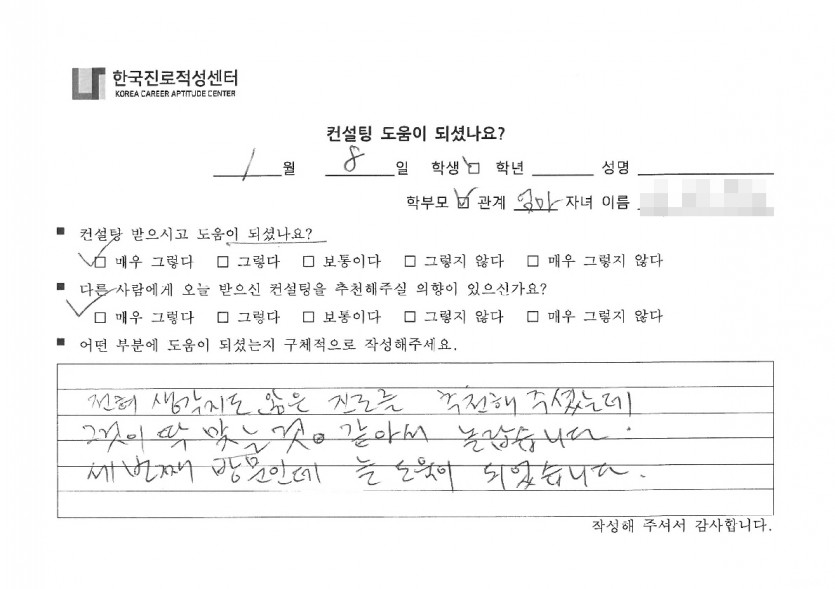 한국진로적성센터
KOREA CAREER APTITUDE CENTER
컨설팅 도움이 되셨나요?
1 월 8 일 학생 □ 학년 성명
학부모 ☑ 관계 엄마 자녀 이름
■ 컨설팅 받으시고 도움이 되셨나요?
☑ 매우 그렇다 □ 그렇다 □ 보통이다 □ 그렇지 않다 □ 매우 그렇지 않다
■ 다른 사람에게 오늘 받으신 컨설팅을 추천해주실 의향이 있으신가요?
☑ 매우 그렇다 □ 그렇다 □ 보통이다 □ 그렇지 않다 □ 매우 그렇지 않다
■ 어떤 부분에 도움이 되셨는지 구체적으로 작성해주세요.
전혀 생각지도 않은 진로를 추천해 주셨는데
그것이 딱 맞는 것 같아서 놀랍습니다.
세번째 방문인데 늘 도움이 되었습니다.
작성해 주셔서 감사합니다.